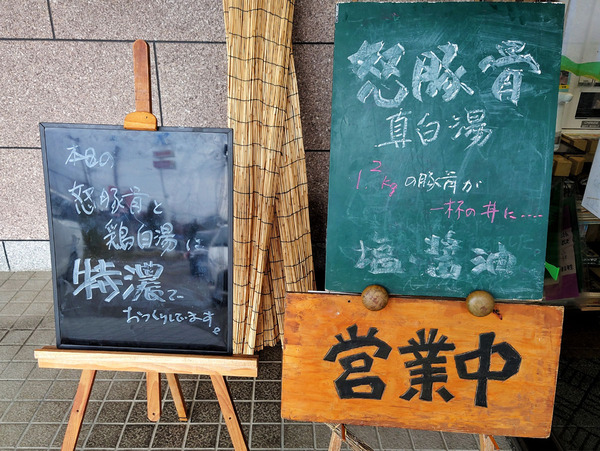 本日の
怒豚骨と
鶏白湯に
特濃で
おつくりしています。
怒豚骨
真白湯
1.2kgの豚骨が
一杯の丼に....
塩・醤油
営業中